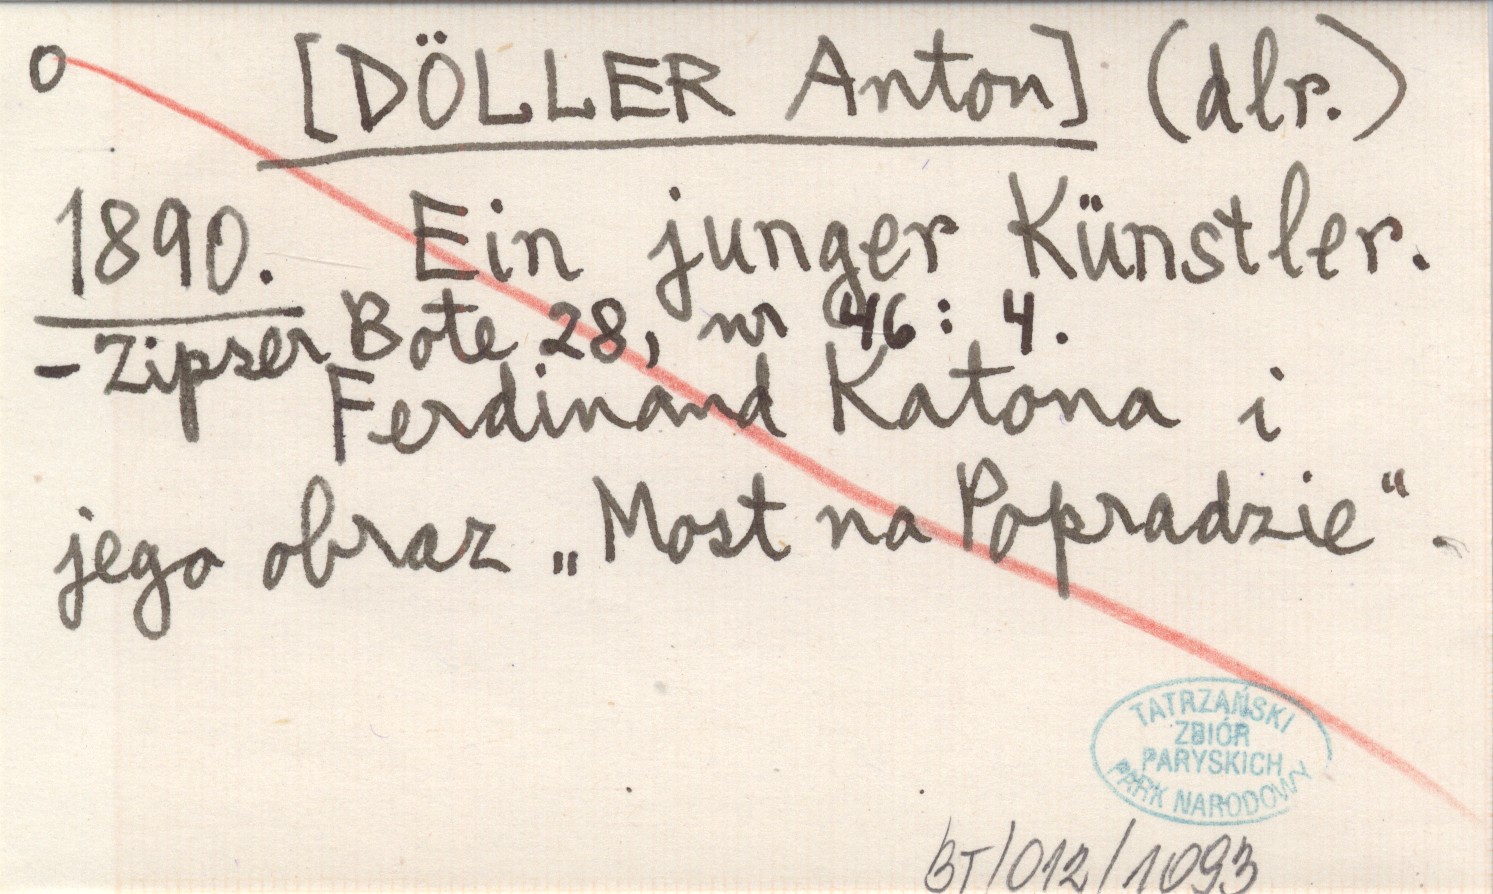 o [DÖLLER Anton] (dlr.)
1890. Ein junger Künstler.
- Zipser Bote 28, nr 46: 4.
Ferdinand Katona i
jego obraz „Most na Popradzie“.
TATRZAŃSKI
ZBIÓR
PARYSKICH
PARK NARODOWY
BT/012/1093